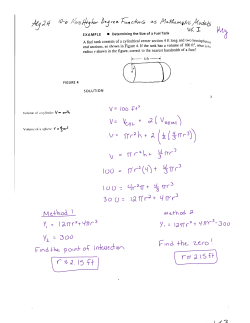 Alg 2H 10-2 Higher Degree Functions as Mathematic Models
Key
EXAMPLE ■ Determining the Size of a Fuel Tank
A fuel tank consists of a cylindrical center section 4 ft long and two hemispherical
end sections, as shown in Figure 4. If the tank has a volume of 100 ft³, what is the
radius r shown in the figure, correct to the nearest hundredth of a foot?
FIGURE 4
SOLUTION
V = 100 ft³
Volume of a cylinder
V = Vcyl + 2(VHEMI)
Volume of a sphere
V = πr²h + 2(½(4/3 πr³))
V = πr²h + 4/3 πr³
100 = πr²(4) + 4/3 πr³
100 = 4r²π + 4/3 πr³
300 = 12πr² + 4πr³
Method 1
Y₁ = 12πr² + 4πr³
Y₂ = 300
Find the point of intersection
r ≈ 2.15 ft
method 2
Y₁ = 12πr² + 4πr³ - 300
Find the zero!
r ≈ 2.15 ft